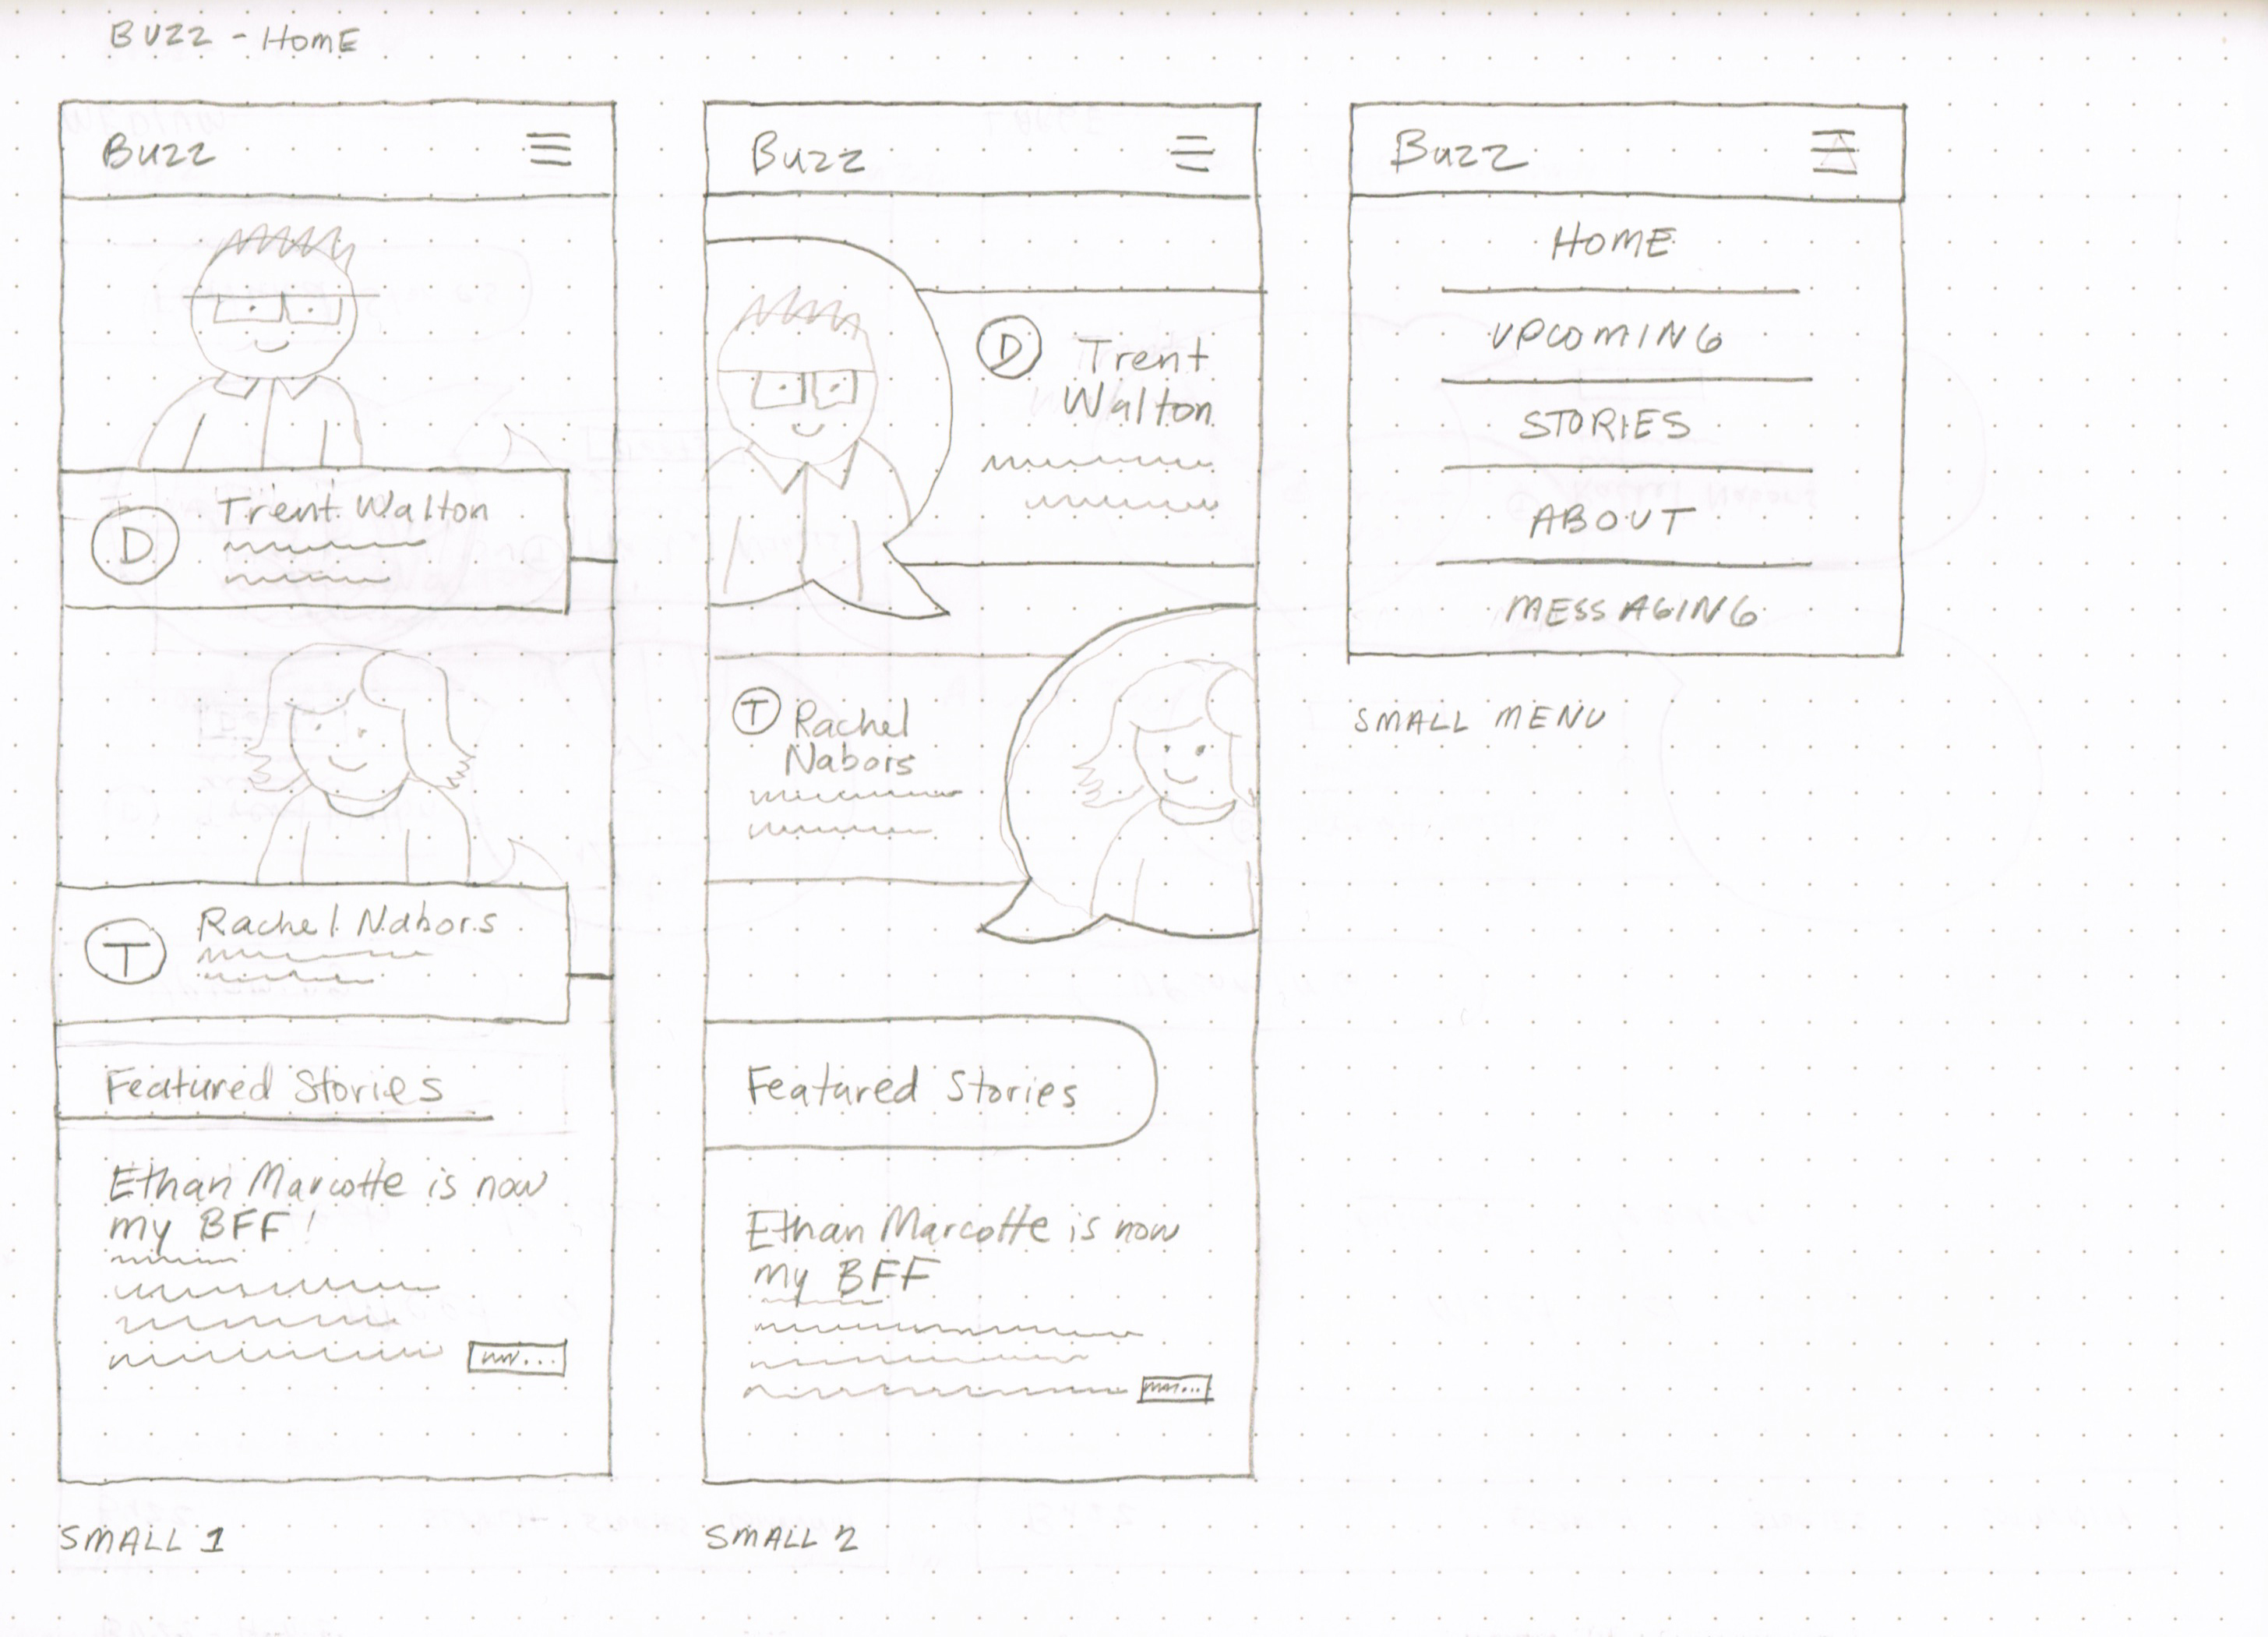 BUZZ - HOME
Buzz
D
Trent Walton
T
Rachel Nabors
Featured Stories
Ethan Marcotte is now
my BFF!
SMALL 1
Buzz
D
Trent
Walton
T
Rachel
Nabors
Featured Stories
Ethan Marcotte is now
my BFF
SMALL 2
Buzz
HOME
UPCOMING
STORIES
ABOUT
MESSAGING
SMALL MENU